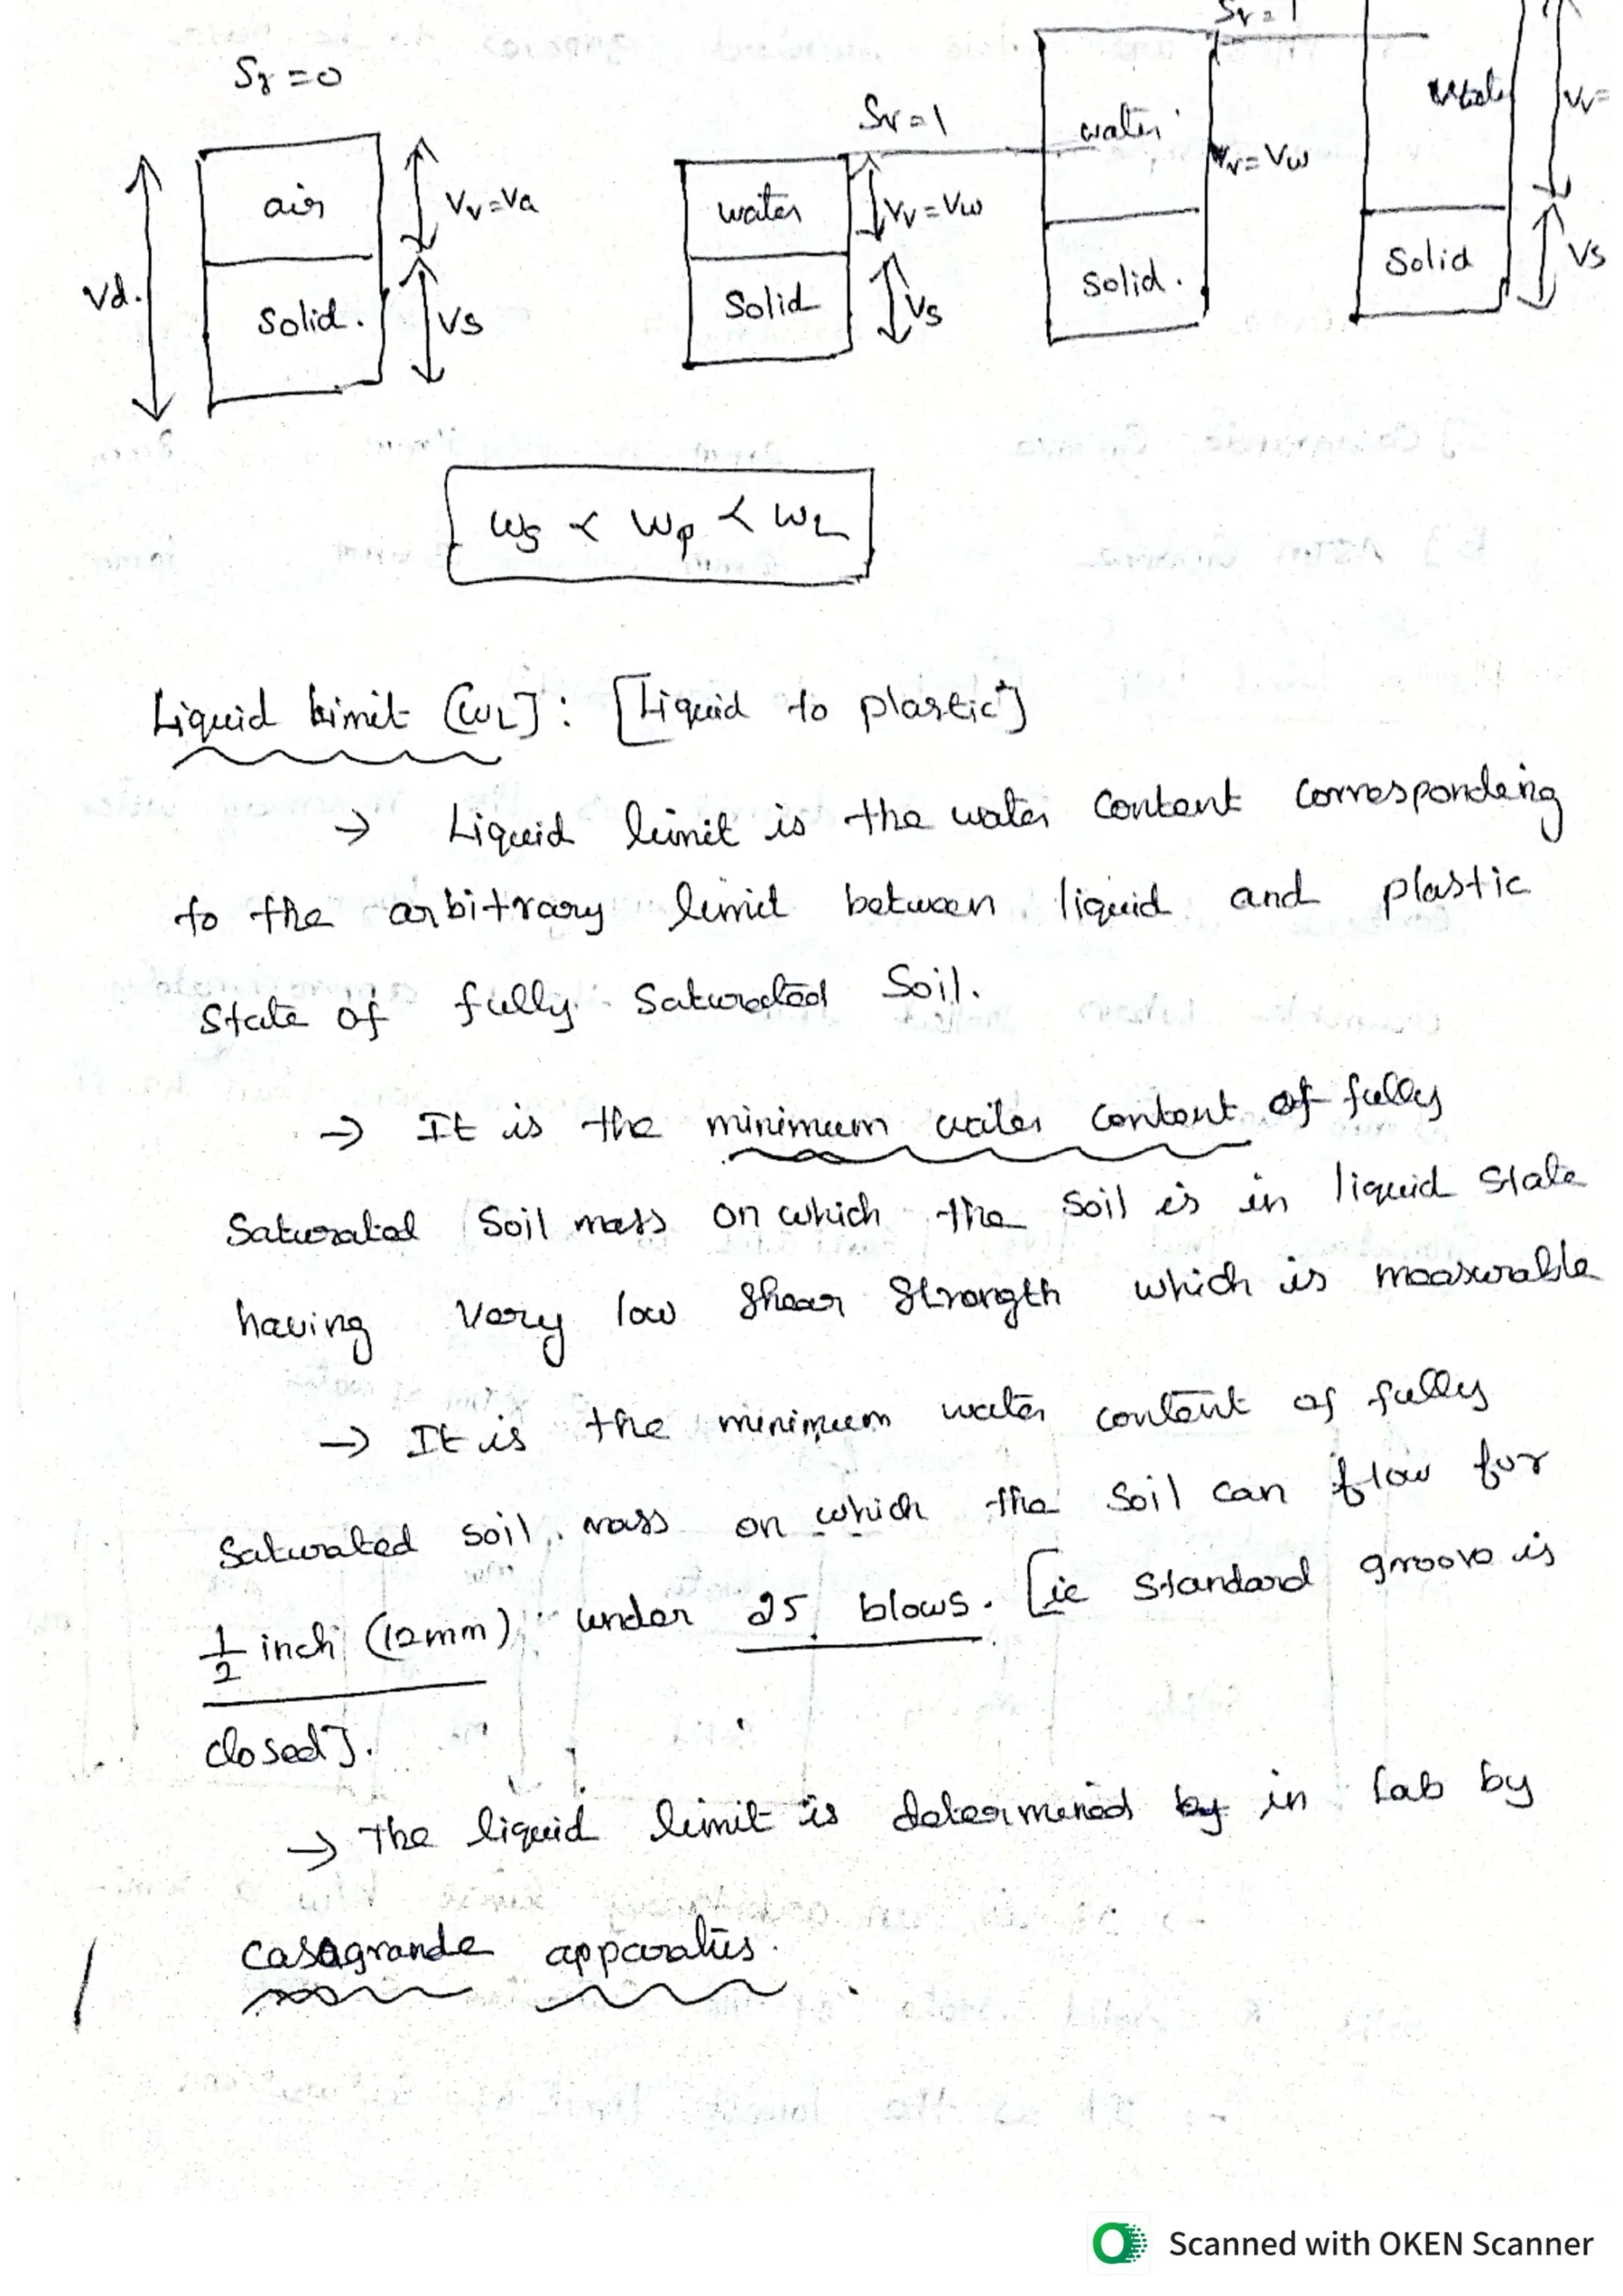 Sr = 1
Sr = 0
Sr = 1
water
Vv =
air
Vv = Va
water
Vv = Vw
Vv = Vw
Vd.
Solid.
Vs
Solid
Vs
Solid.
Solid
Vs
ws < wp < wL
Liquid Limit (wL]: [Liquid to plastic]
→ Liquid limit is the water content corresponding
to the arbitrary limit between liquid and plastic
State of fully Saturated Soil.
→ It is the minimum water content of fully
Saturated Soil mass on which the Soil is in liquid State
having Very low Shear Strength which is measurable
→ It is the minimum water content of fully
Saturated soil mass on which the Soil can flow for
1/2 inch (12mm) under 25 blows. [ie Standard groove is
closed].
→ The liquid limit is determined by in Lab by
casagrande apparatus.
Scanned with OKEN Scanner